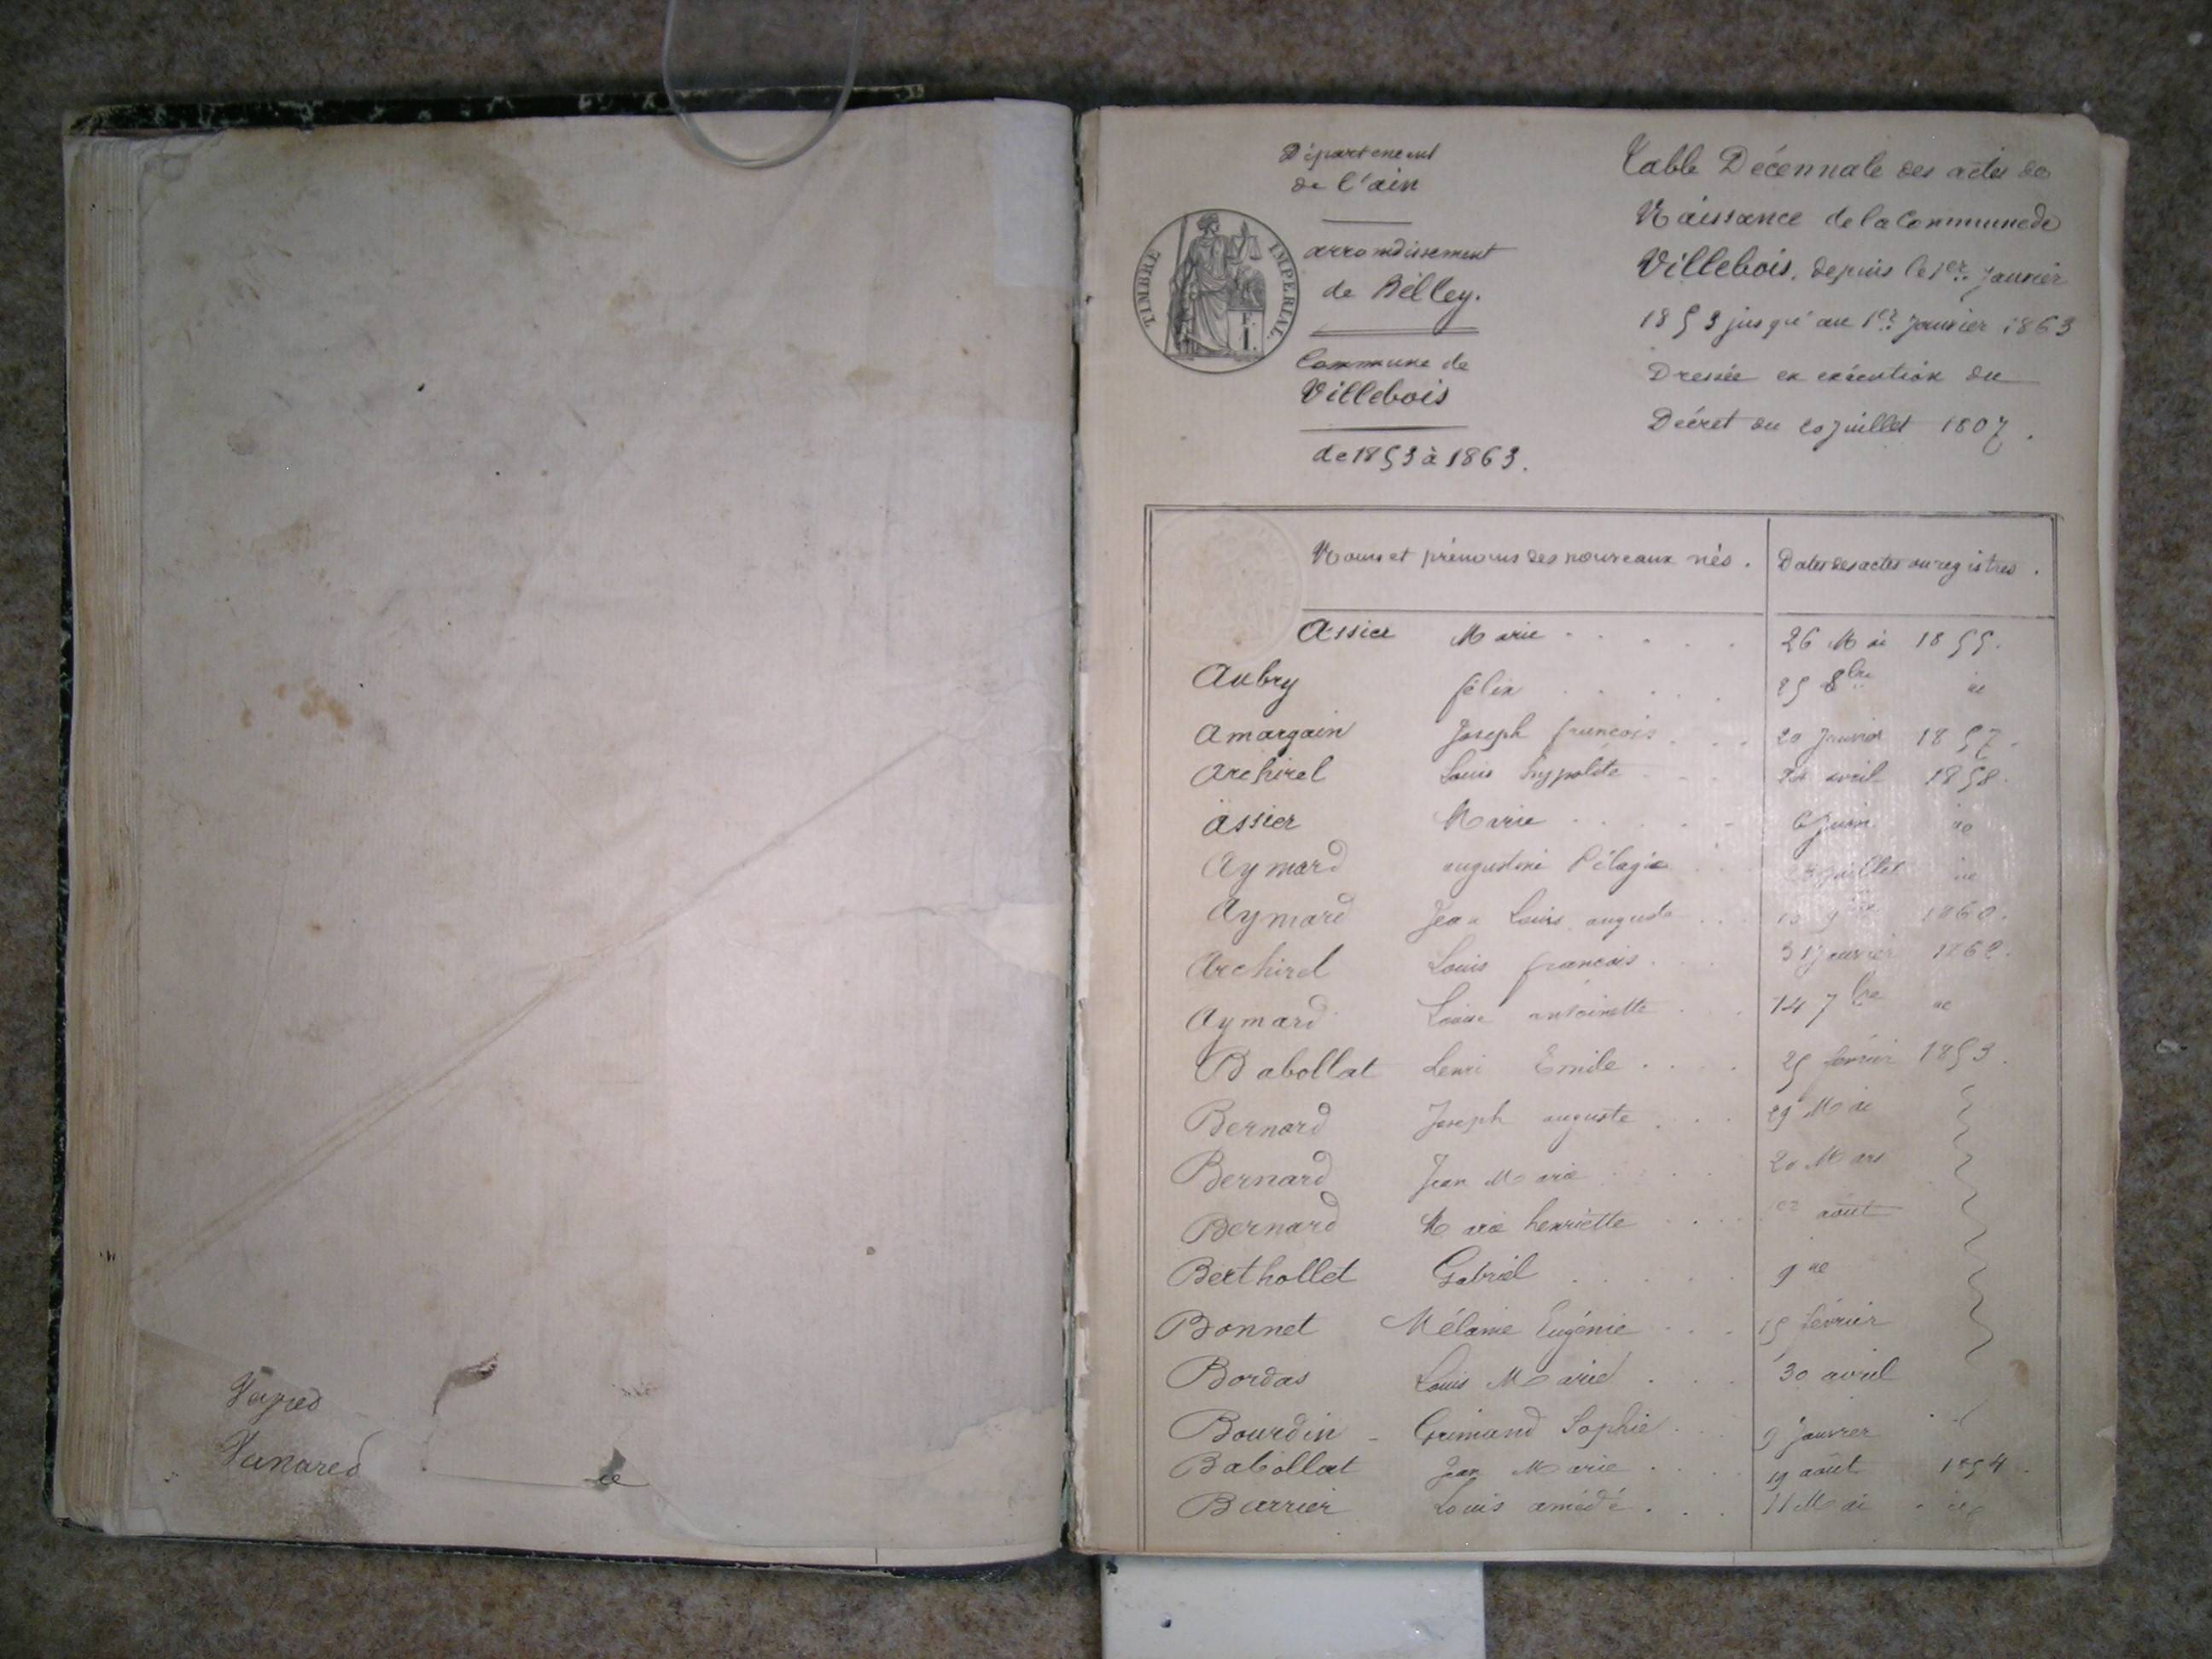 Vanared
Département
de l'ain
TIMBRE IMPERIAL
E.
I.
arrondissement
de Belley.
Commune de
Villebois
de 1853 à 1863.
Table Décennale des actes de
Naissance de la Commune de
Villebois, depuis le 1er Janvier
1853 jusqu'au 1er Janvier 1863
Dressée en exécution du
Décret du 20 Juillet 1807.
Noms et prénoms des nouveaux nés. Dates des actes ou registres.
Assier Marie 26 Mai 1855.
Aubry félix 25 8bre ie
Amargain Joseph françois 20 Janvier 1857.
Archirel Louis hyppolite 24 avril 1858.
assier Marie 6 Juin ie
Aymard augustine Pélagie 23 Juillet ie
Aymard Jean Louis auguste 10 1860.
Archirel Louis françois 31 Janvier 1862.
Aymard Louise antoinette 14 7bre ie
Babollat henri Emile 25 février 1853.
Bernard Joseph auguste 29 Mai
Bernard Jean Marie 20 Mars
Bernard Marie henriette 1er août
Berthollet Gabriel 9
Bonnet Mélanie Eugénie 15 février
Bordas Louis Marie 30 avril
Bourdin - Grimand Sophie 9 Janvier
Babollat Jean Marie 19 août 1854.
Barrier Louis amédé 11 Mai ie